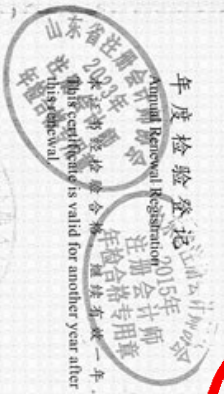 年度检验登记
Annual Renewal Registration
本证书经检验合格,继续有效一年。
This certificate is valid for another year after
this renewal.
山东省注册会计师协会
2023年
注册会计师
年检合格专用章
2015年
注册会计师
年检合格专用章